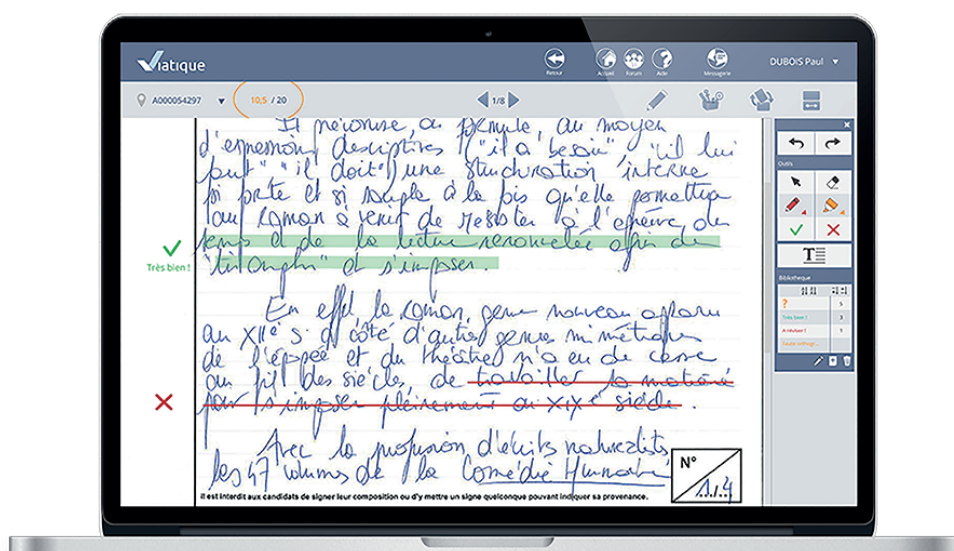 Viatique
Retour
Accueil
Forum
Aide
Messagerie
DUBOIS Paul
A000054297
10,5 / 20
1/8
Il préconise, a formule, au moyen
d'expressions descriptives ("il a besoin", "il lui
faut" "il doit") une structuration interne
si forte et si souple à la fois qu'elle permettra
au roman à venir de résister à l'épreuve du
temps et de la lecture renouvelée afin de
"triompher" et s'imposer.
Très bien !
En effet le roman, genre nouveau apparu
au XIIe s. à côté d'autres genres mimétiques
de l'épopée et du théâtre n'a eu de cesse
au fil des siècles, de travailler sa matière
pour s'imposer pleinement au XIXe siècle.
Avec la profusion d'écrits naturalistes
les 47 volumes de la Comédie Humaine
N°
1/4
Il est interdit aux candidats de signer leur composition ou d'y mettre un signe quelconque pouvant indiquer sa provenance.
Outils
T
Bibliothèque
? 5
Très bien ! 3
A réviser ! 1